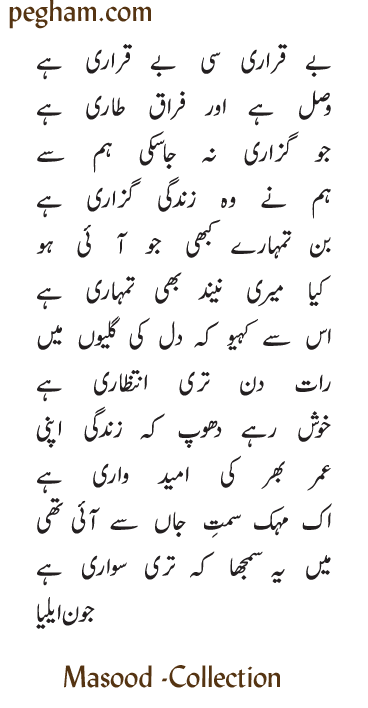 pegham.com
بے قراری سی بے قراری ہے
وصل ہے اور فراق طاری ہے
جو گزاری نہ جاسکی ہم سے
ہم نے وہ زندگی گزاری ہے
بن تمہارے کبھی جو آ ئی ہو
کیا میری نیند بھی تمہاری ہے
اس سے کہیو کہ دل کی گلیوں میں
رات دن تری انتظاری ہے
خوش رہے دھوپ کہ زندگی اپنی
عمر بھر کی امید واری ہے
اک مہک سمتِ جاں سے آئی تھی
میں یہ سمجھا کہ تری سواری ہے
جون ایلیا
Masood -Collection